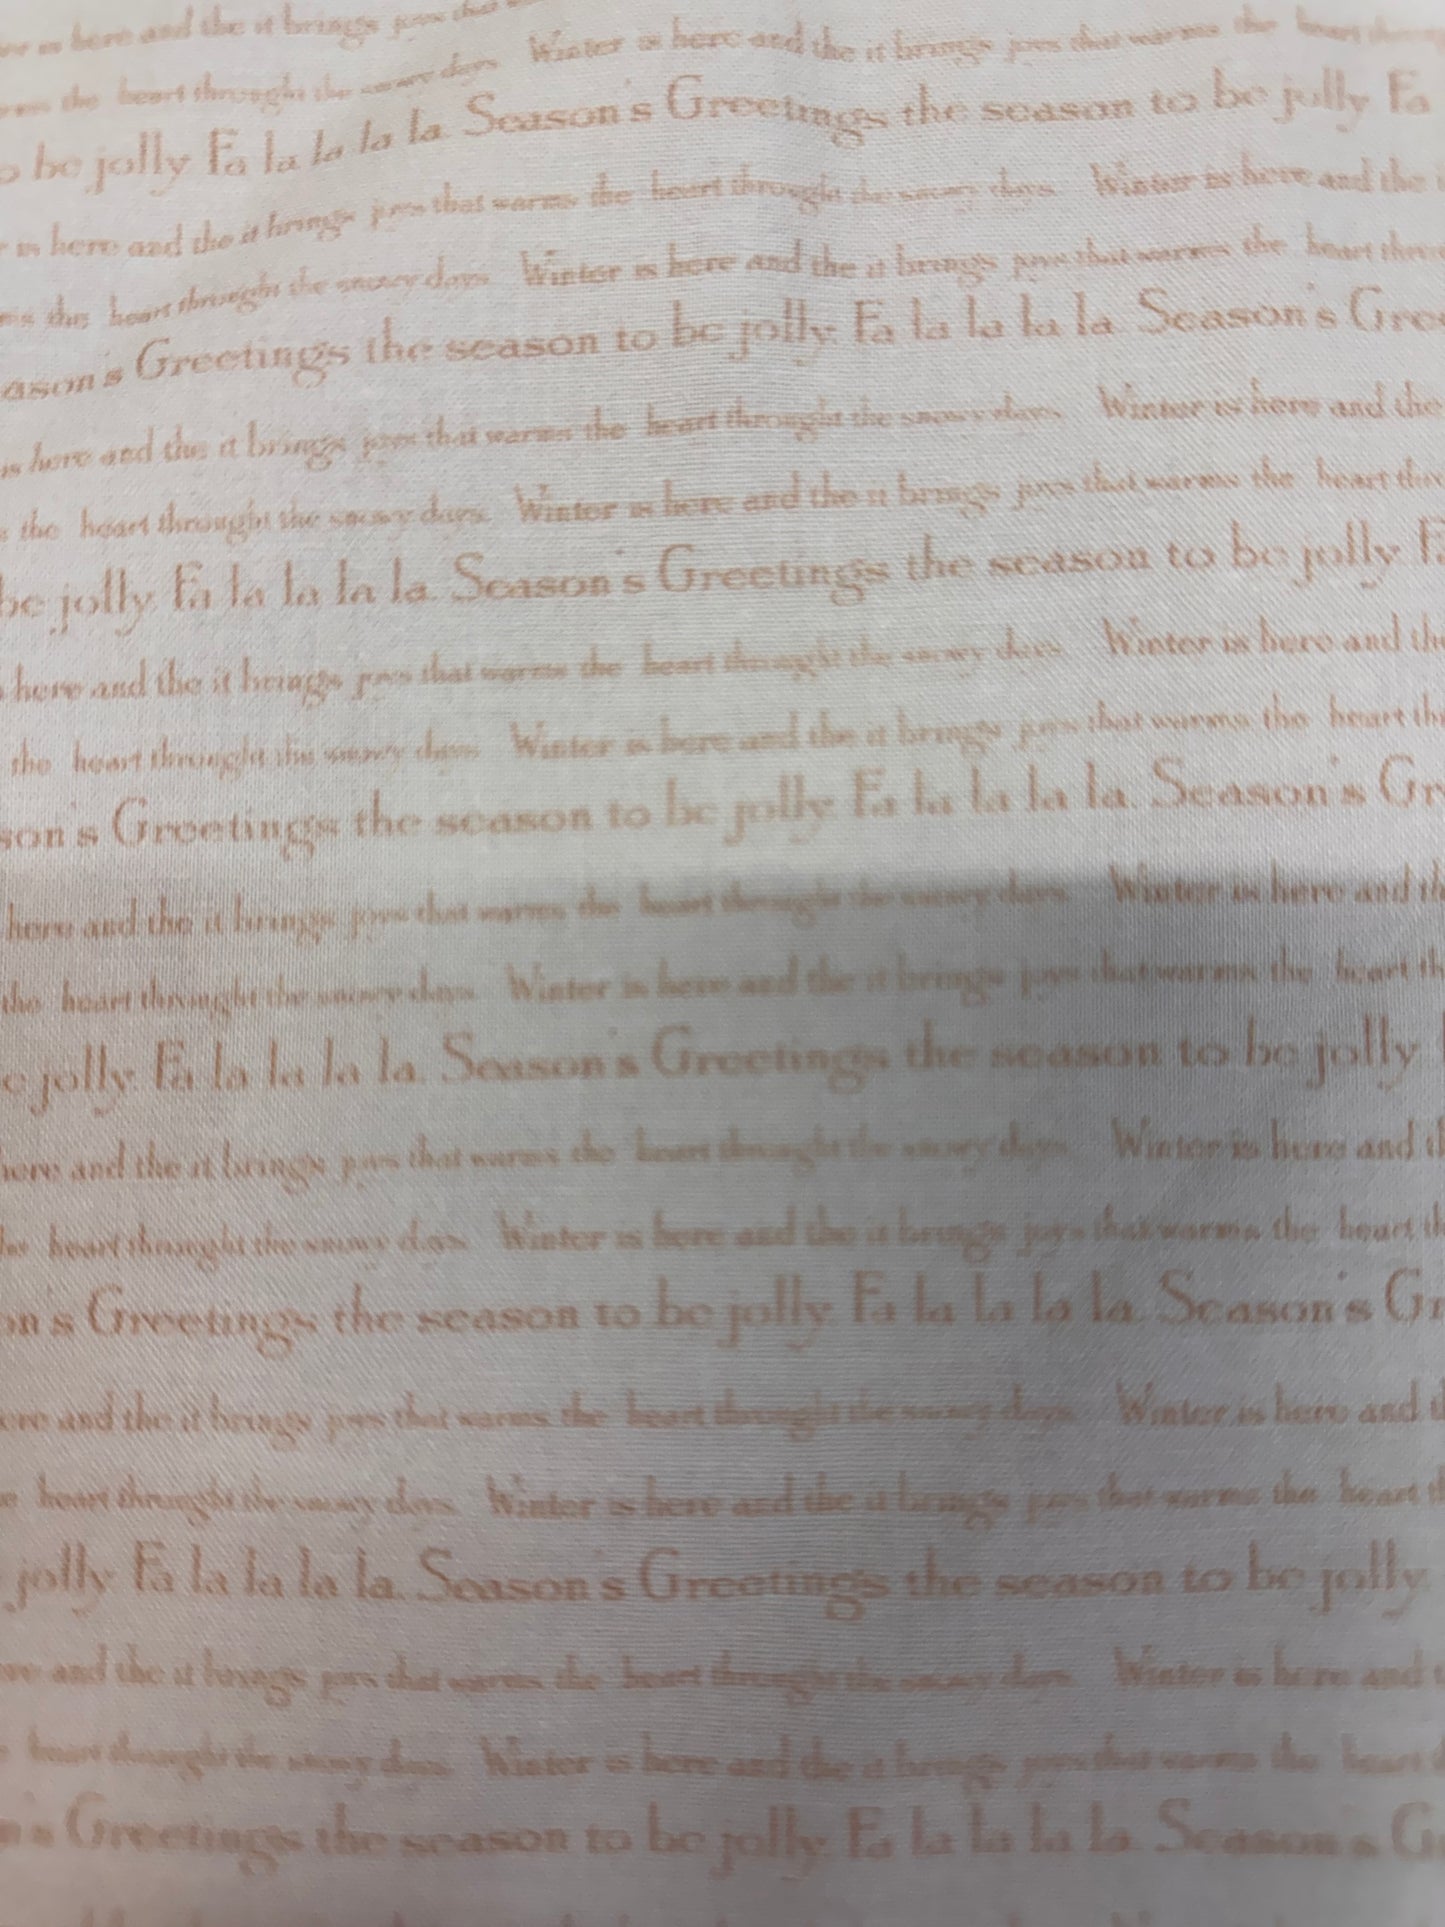 is here and the it brings joys that
Winter is here and the it brings joys that warms the heart
the heart throught the snowy days
to be jolly. Fa la la la la. Season's Greetings the season to be jolly. Fa
is here and the it brings joys that warms the heart throught the snowy days Winter is here and the
the heart throught the snowy days Winter is here and the it brings joys that warms the heart
Greetings the season to be jolly. Fa la la la la. Season's
is here and the it brings joys that warms the heart throught the snowy days Winter is here and the
the heart throught the snowy days Winter is here and the it brings joys that warms the heart
be jolly. Fa la la la la. Season's Greetings the season to be jolly.
here and the it brings joys that warms the heart throught the snowy days Winter is here and
the heart throught the snowy days Winter is here and the it brings joys that warms the heart
Greetings the season to be jolly. Fa la la la la. Season's
here and the it brings joys that warms the heart throught the snowy days Winter is here and
the heart throught the snowy days Winter is here and the it brings joys that warms the heart
jolly. Fa la la la la. Season's Greetings the season to be jolly
here and the it brings joys that warms the heart throught the snowy days Winter is here and
heart throught the snowy days Winter is here and the it brings joys that warms the heart
Greetings the season to be jolly. Fa la la la la. Season's
and the it brings joys that warms the heart throught the snowy days Winter is here and
heart throught the snowy days Winter is here and the it brings joys that warms the heart
jolly. Fa la la la la. Season's Greetings the season to be jolly.
and the it brings joys that warms the heart throught the snowy days Winter is here and
heart throught the snowy days Winter is here and the it brings joys that warms the heart
Greetings the season to be jolly. Fa la la la la. Season's